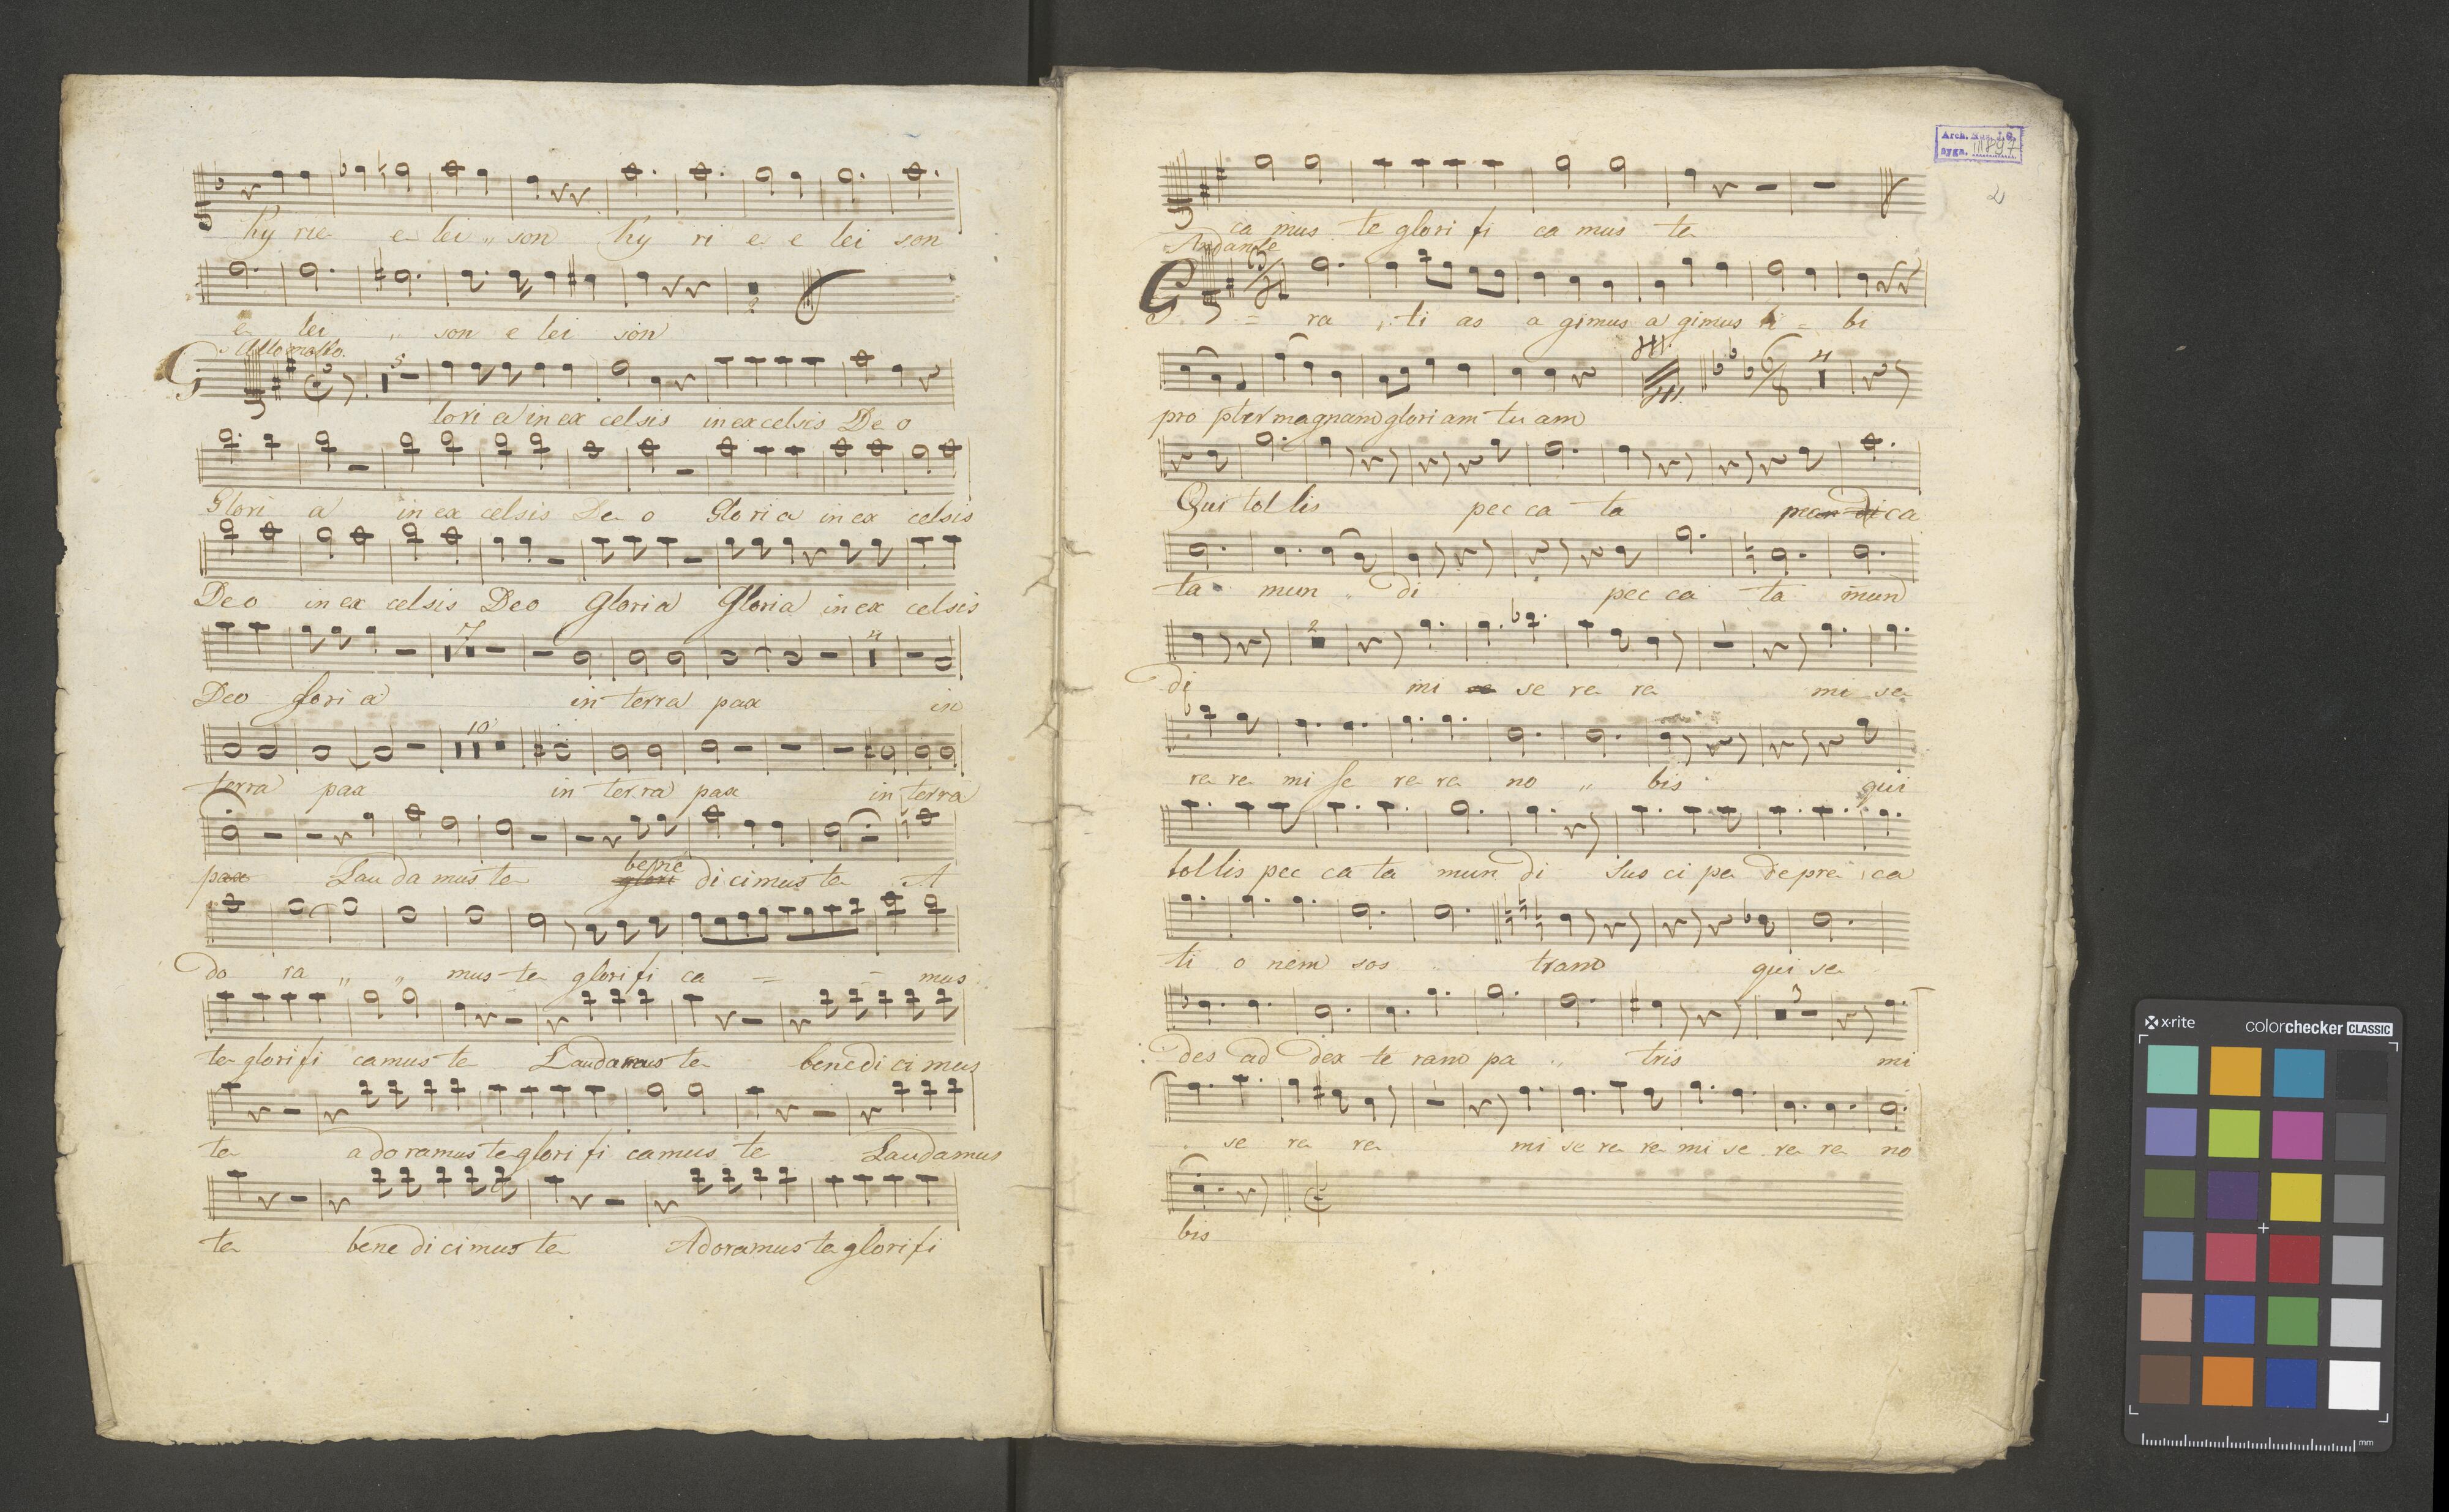 Ky rie e lei „ son Ky ri e e lei son
e lei „ son e lei son
2
Allo molto.
5
G lori a in ex celsis in excelsis De o
Glori a in ex celsis De o Glo ri a in ex celsis
Deo in ex celsis Deo Gloria Gloria in ex celsis
7 4
Deo glori a in terra pax in
10
terra pax in terra pax in terra
pax Lauda mus te bene
glori di cimus te A
do ra „ „ mus te glorifi ca = = mus
te glorifi camus te Laudamus te benedi ci mus
te a do ramus te glori fi camus te Laudamus
te bene di cimus te Adoramus te glorifi
Arch. Mus. J. G.
sygn. III 897
2
ca mus te glori fi ca mus te
Andante
3/4
G = ra „ ti as a gimus a gimus ti = bi
6/8 4
pro pter magnam gloriam tu am
Qui tol lis pec ca ta pec ca
ta mun „ di pec ca ta mun
2
di mi se re re mi se
re re mi se re re no „ bis qui
tollis pec ca ta mun di Sus ci pe depre ca
ti o nem nos tram qui se
3
des ad dex te ram pa „ tris mi
se re re mi se re re mi se re re no
bis
x·rite colorchecker CLASSIC
mm